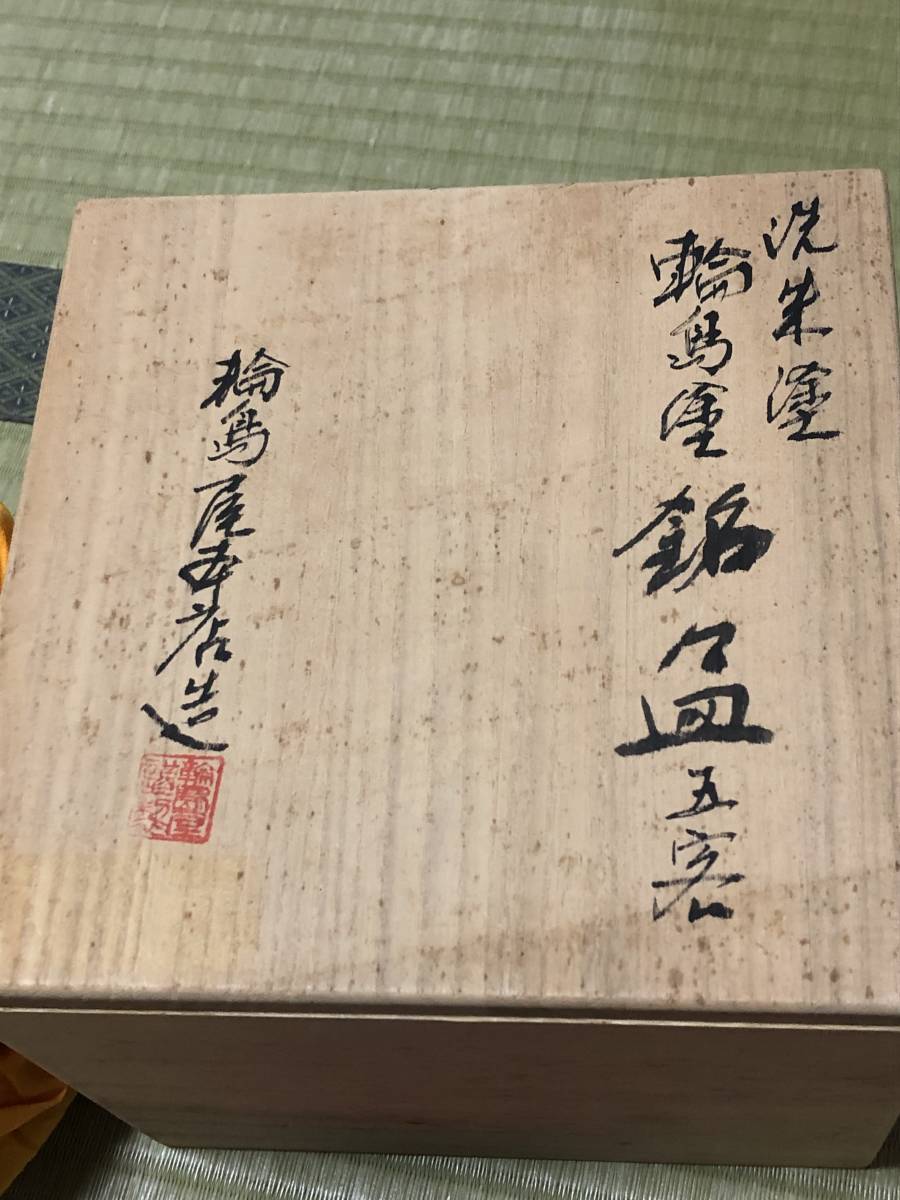 洗朱塗
輪島塗 銘々皿 五客
輪島屋本店造